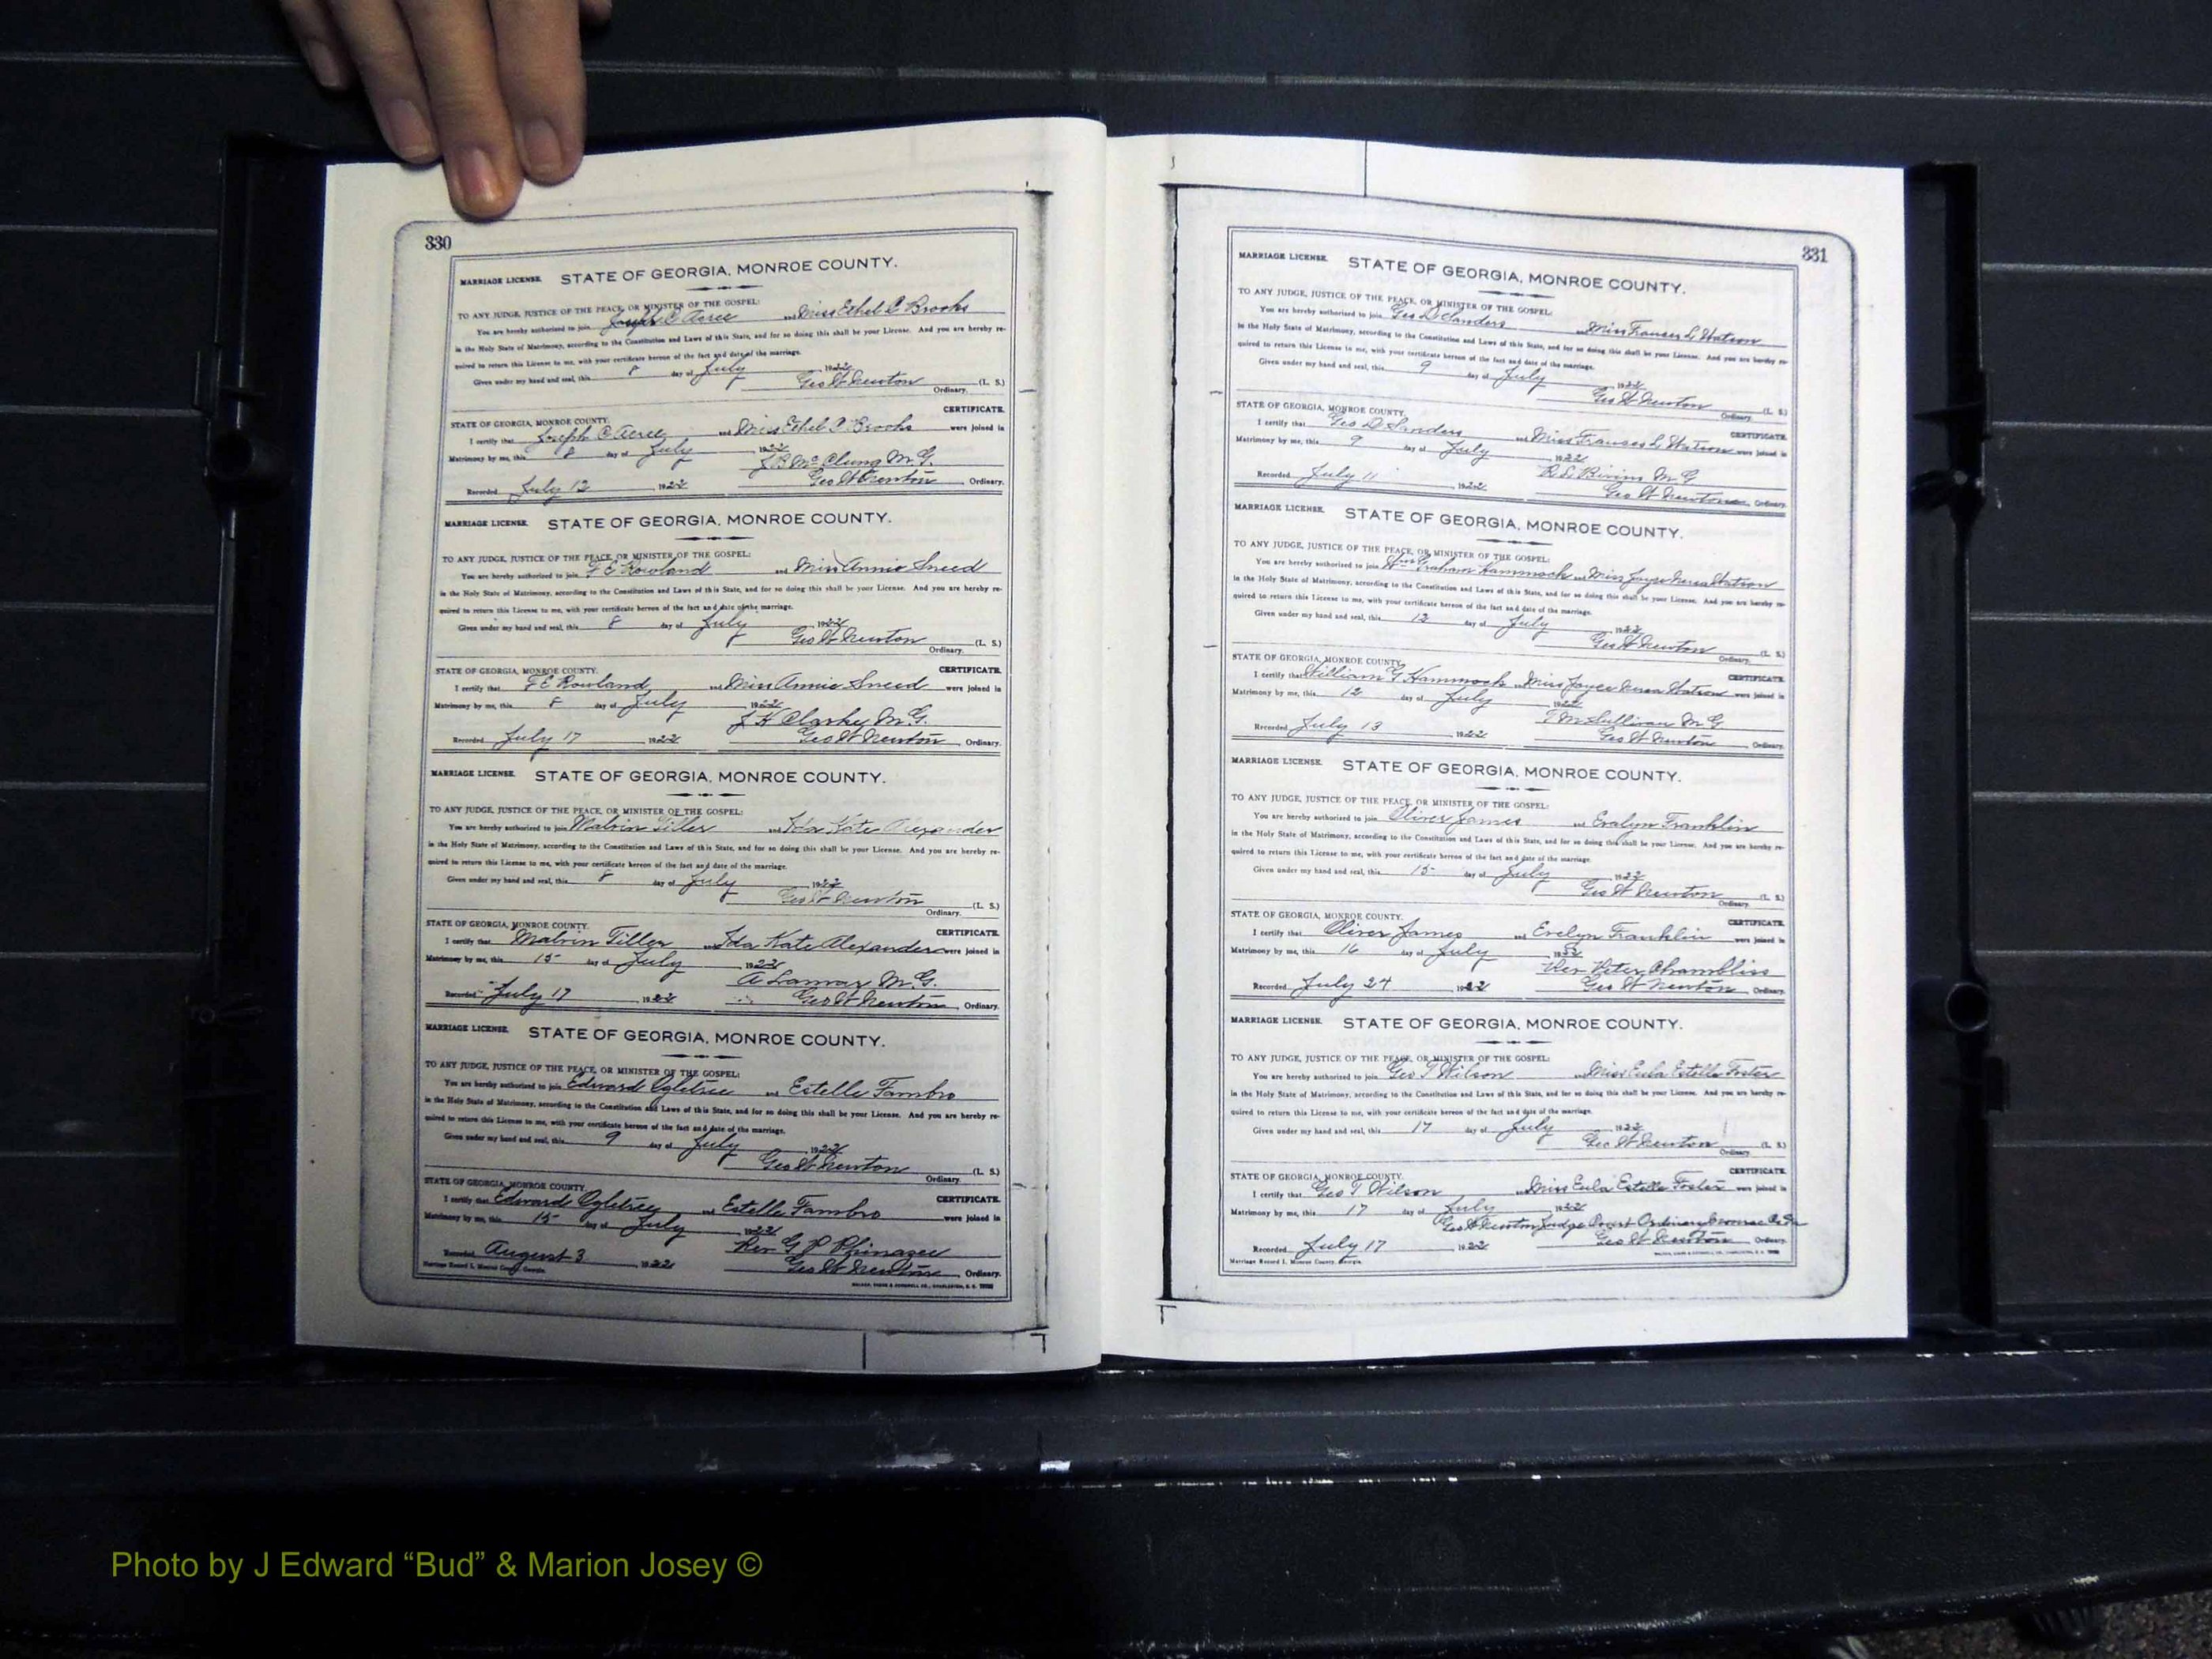 330
MARRIAGE LICENSE. STATE OF GEORGIA, MONROE COUNTY.
TO ANY JUDGE, JUSTICE OF THE PEACE, OR MINISTER OF THE GOSPEL:
You are hereby authorized to join Joseph C Acree and Miss Ethel C Brooks
in the Holy State of Matrimony, according to the Constitution and Laws of this State, and for so doing this shall be your License. And you are hereby re-
quired to return this License to me, with your certificate hereon of the fact and date of the marriage.
Given under my hand and seal, this 8 day of July 1922
Geo W Newton (L. S.)
Ordinary.
CERTIFICATE.
STATE OF GEORGIA, MONROE COUNTY.
I certify that Joseph C Acree and Miss Ethel C Brooks were joined in
Matrimony by me, this 8 day of July 1922
J B McClung M.G.
Recorded July 12 1922 Geo W Newton Ordinary.
MARRIAGE LICENSE. STATE OF GEORGIA, MONROE COUNTY.
TO ANY JUDGE, JUSTICE OF THE PEACE, OR MINISTER OF THE GOSPEL:
You are hereby authorized to join F E Rowland and Miss Annie Sneed
in the Holy State of Matrimony, according to the Constitution and Laws of this State, and for so doing this shall be your License. And you are hereby re-
quired to return this License to me, with your certificate hereon of the fact and date of the marriage.
Given under my hand and seal, this 8 day of July 1922
Geo W Newton (L. S.)
Ordinary.
STATE OF GEORGIA, MONROE COUNTY. CERTIFICATE.
I certify that F E Rowland and Miss Annie Sneed were joined in
Matrimony by me, this 8 day of July 1922
J H Clarky M.G.
Recorded July 17 1922 Geo W Newton Ordinary.
MARRIAGE LICENSE. STATE OF GEORGIA, MONROE COUNTY.
TO ANY JUDGE, JUSTICE OF THE PEACE, OR MINISTER OF THE GOSPEL:
You are hereby authorized to join Malvin Tiller and Ida Kate Alexander
in the Holy State of Matrimony, according to the Constitution and Laws of this State, and for so doing this shall be your License. And you are hereby re-
quired to return this License to me, with your certificate hereon of the fact and date of the marriage.
Given under my hand and seal, this 8 day of July 1922
Geo W Newton (L. S.)
Ordinary.
STATE OF GEORGIA, MONROE COUNTY. CERTIFICATE.
I certify that Malvin Tiller and Ida Kate Alexander were joined in
Matrimony by me, this 15 day of July 1922
A Lamar M.G.
Recorded July 17 1922 Geo W Newton Ordinary.
MARRIAGE LICENSE. STATE OF GEORGIA, MONROE COUNTY.
TO ANY JUDGE, JUSTICE OF THE PEACE, OR MINISTER OF THE GOSPEL:
You are hereby authorized to join Edward Ogletree and Estelle Fambro
in the Holy State of Matrimony, according to the Constitution and Laws of this State, and for so doing this shall be your License. And you are hereby re-
quired to return this License to me, with your certificate hereon of the fact and date of the marriage.
Given under my hand and seal, this 9 day of July 1922
Geo W Newton (L. S.)
Ordinary.
STATE OF GEORGIA, MONROE COUNTY. CERTIFICATE.
I certify that Edward Ogletree and Estelle Fambro were joined in
Matrimony by me, this 15 day of July 1922
Rev G P Phinazee
Recorded August 3 1922 Geo W Newton Ordinary.
Marriage Record L Monroe County, Georgia.
331
MARRIAGE LICENSE. STATE OF GEORGIA, MONROE COUNTY.
TO ANY JUDGE, JUSTICE OF THE PEACE, OR MINISTER OF THE GOSPEL:
You are hereby authorized to join Geo D Sanders and Miss Frances L Watson
in the Holy State of Matrimony, according to the Constitution and Laws of this State, and for so doing this shall be your License. And you are hereby re-
quired to return this License to me, with your certificate hereon of the fact and date of the marriage.
Given under my hand and seal, this 9 day of July 1922
Geo W Newton (L. S.)
Ordinary.
STATE OF GEORGIA, MONROE COUNTY. CERTIFICATE.
I certify that Geo D Sanders and Miss Frances L Watson were joined in
Matrimony by me, this 9 day of July 1922
R L Bivins M G
Recorded July 11 1922 Geo W Newton Ordinary.
MARRIAGE LICENSE. STATE OF GEORGIA, MONROE COUNTY.
TO ANY JUDGE, JUSTICE OF THE PEACE, OR MINISTER OF THE GOSPEL:
You are hereby authorized to join Wm Graham Hammock and Miss Joyce Watson
in the Holy State of Matrimony, according to the Constitution and Laws of this State, and for so doing this shall be your License. And you are hereby re-
quired to return this License to me, with your certificate hereon of the fact and date of the marriage.
Given under my hand and seal, this 12 day of July 1922
Geo W Newton (L. S.)
Ordinary.
STATE OF GEORGIA, MONROE COUNTY. CERTIFICATE.
I certify that William G Hammock and Miss Joyce Watson were joined in
Matrimony by me, this 12 day of July 1922
T M Sullivan M G
Recorded July 13 1922 Geo W Newton Ordinary.
MARRIAGE LICENSE. STATE OF GEORGIA, MONROE COUNTY.
TO ANY JUDGE, JUSTICE OF THE PEACE, OR MINISTER OF THE GOSPEL:
You are hereby authorized to join Oliver James and Evalyn Franklin
in the Holy State of Matrimony, according to the Constitution and Laws of this State, and for so doing this shall be your License. And you are hereby re-
quired to return this License to me, with your certificate hereon of the fact and date of the marriage.
Given under my hand and seal, this 15 day of July 1922
Geo W Newton (L. S.)
Ordinary.
STATE OF GEORGIA, MONROE COUNTY. CERTIFICATE.
I certify that Oliver James and Evelyn Franklin were joined in
Matrimony by me, this 16 day of July 1922
Rev Peter Chambliss
Recorded July 24 1922 Geo W Newton Ordinary.
MARRIAGE LICENSE. STATE OF GEORGIA, MONROE COUNTY.
TO ANY JUDGE, JUSTICE OF THE PEACE, OR MINISTER OF THE GOSPEL:
You are hereby authorized to join Geo T Wilson and Miss Eula Estelle Foster
in the Holy State of Matrimony, according to the Constitution and Laws of this State, and for so doing this shall be your License. And you are hereby re-
quired to return this License to me, with your certificate hereon of the fact and date of the marriage.
Given under my hand and seal, this 17 day of July 1922
Geo W Newton (L. S.)
Ordinary.
STATE OF GEORGIA, MONROE COUNTY. CERTIFICATE.
I certify that Geo T Wilson and Miss Eula Estelle Foster were joined in
Matrimony by me, this 17 day of July 1922
Geo W Newton Judge Court Ordinary Monroe Co Ga
Recorded July 17 1922 Geo W Newton Ordinary.
Marriage Record L Monroe County, Georgia.
Photo by J Edward “Bud” & Marion Josey ©